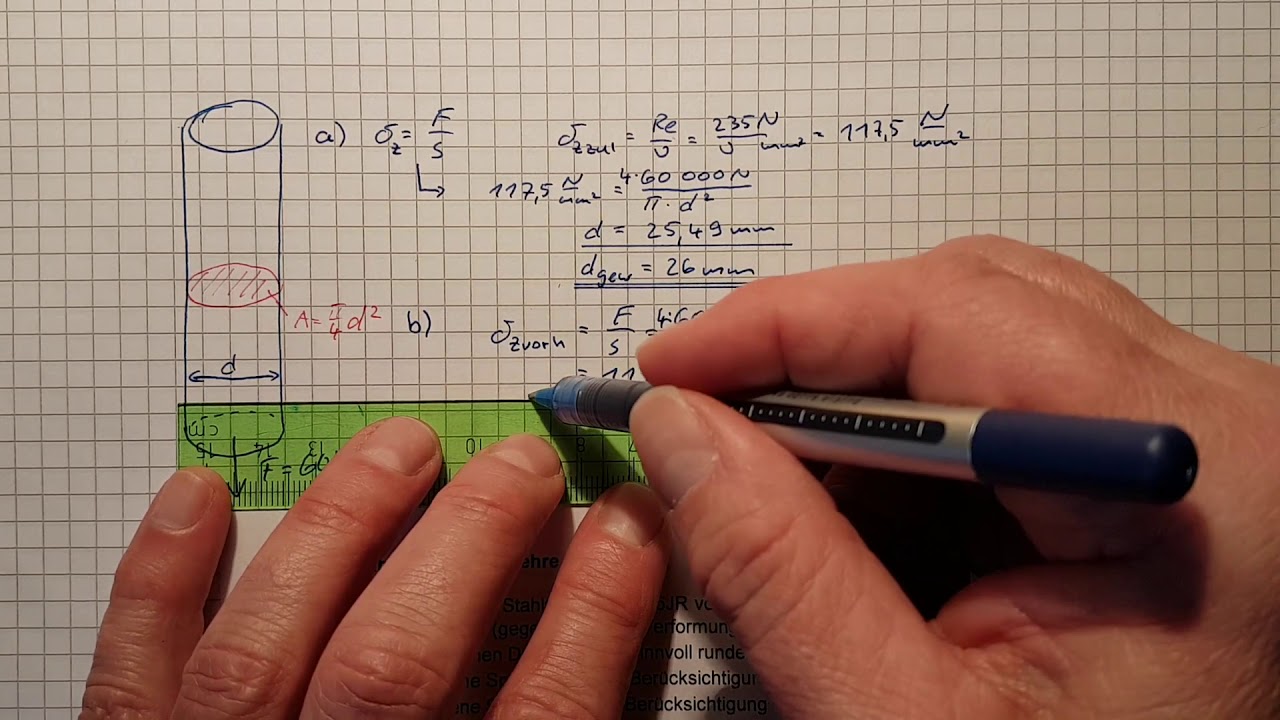 a) σz = F/S
σzzul = Re/ν = 235N/ν mm² = 117,5 N/mm²
117,5 N/mm² = 4·60 000N/π·d²
d = 25,49 mm
dgew = 26 mm
A = π/4 d²
b) σzvorh = F/S =
= 11
d
F = 60
cm
15 14 13 10 8 7
ehre
Stahl
(gege erformung
en D nnvoll runde
ne Sp Berücksichtigun
ene S Berücksichtigung